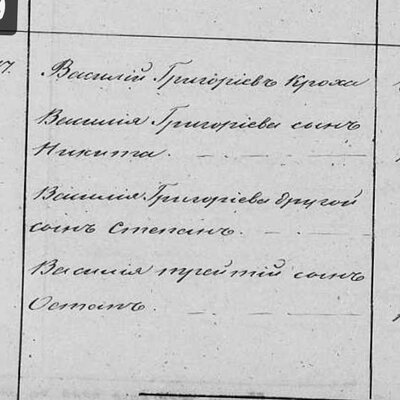 17.
Василій Григоріевъ Кроха
Василія Григоріева сынъ
Никита.
Василія Григоріева другой
сынъ Степанъ.
Василія третій сынъ
Остапъ.